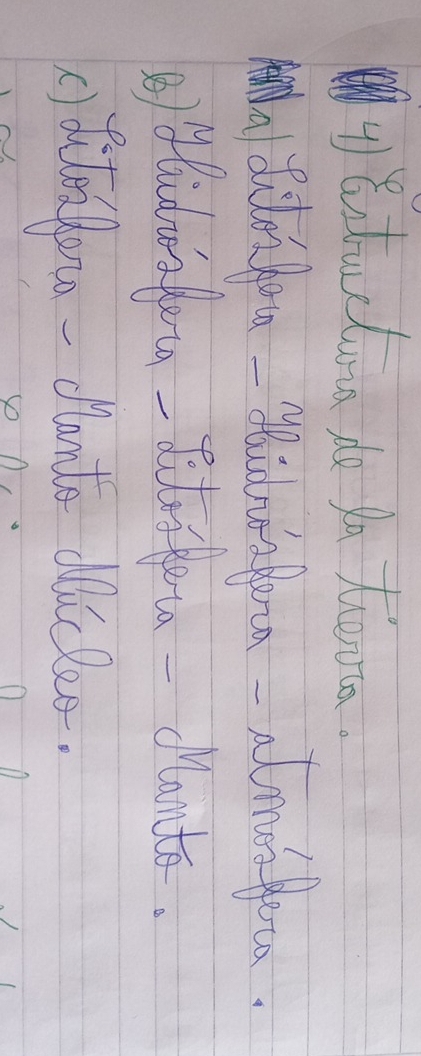 4) Estructura de la tierra.
a) Litósfera - Hidrósfera - atmósfera.
b) Hidrósfera - Litósfera - Manto.
c) Litósfera - Manto Núcleo.